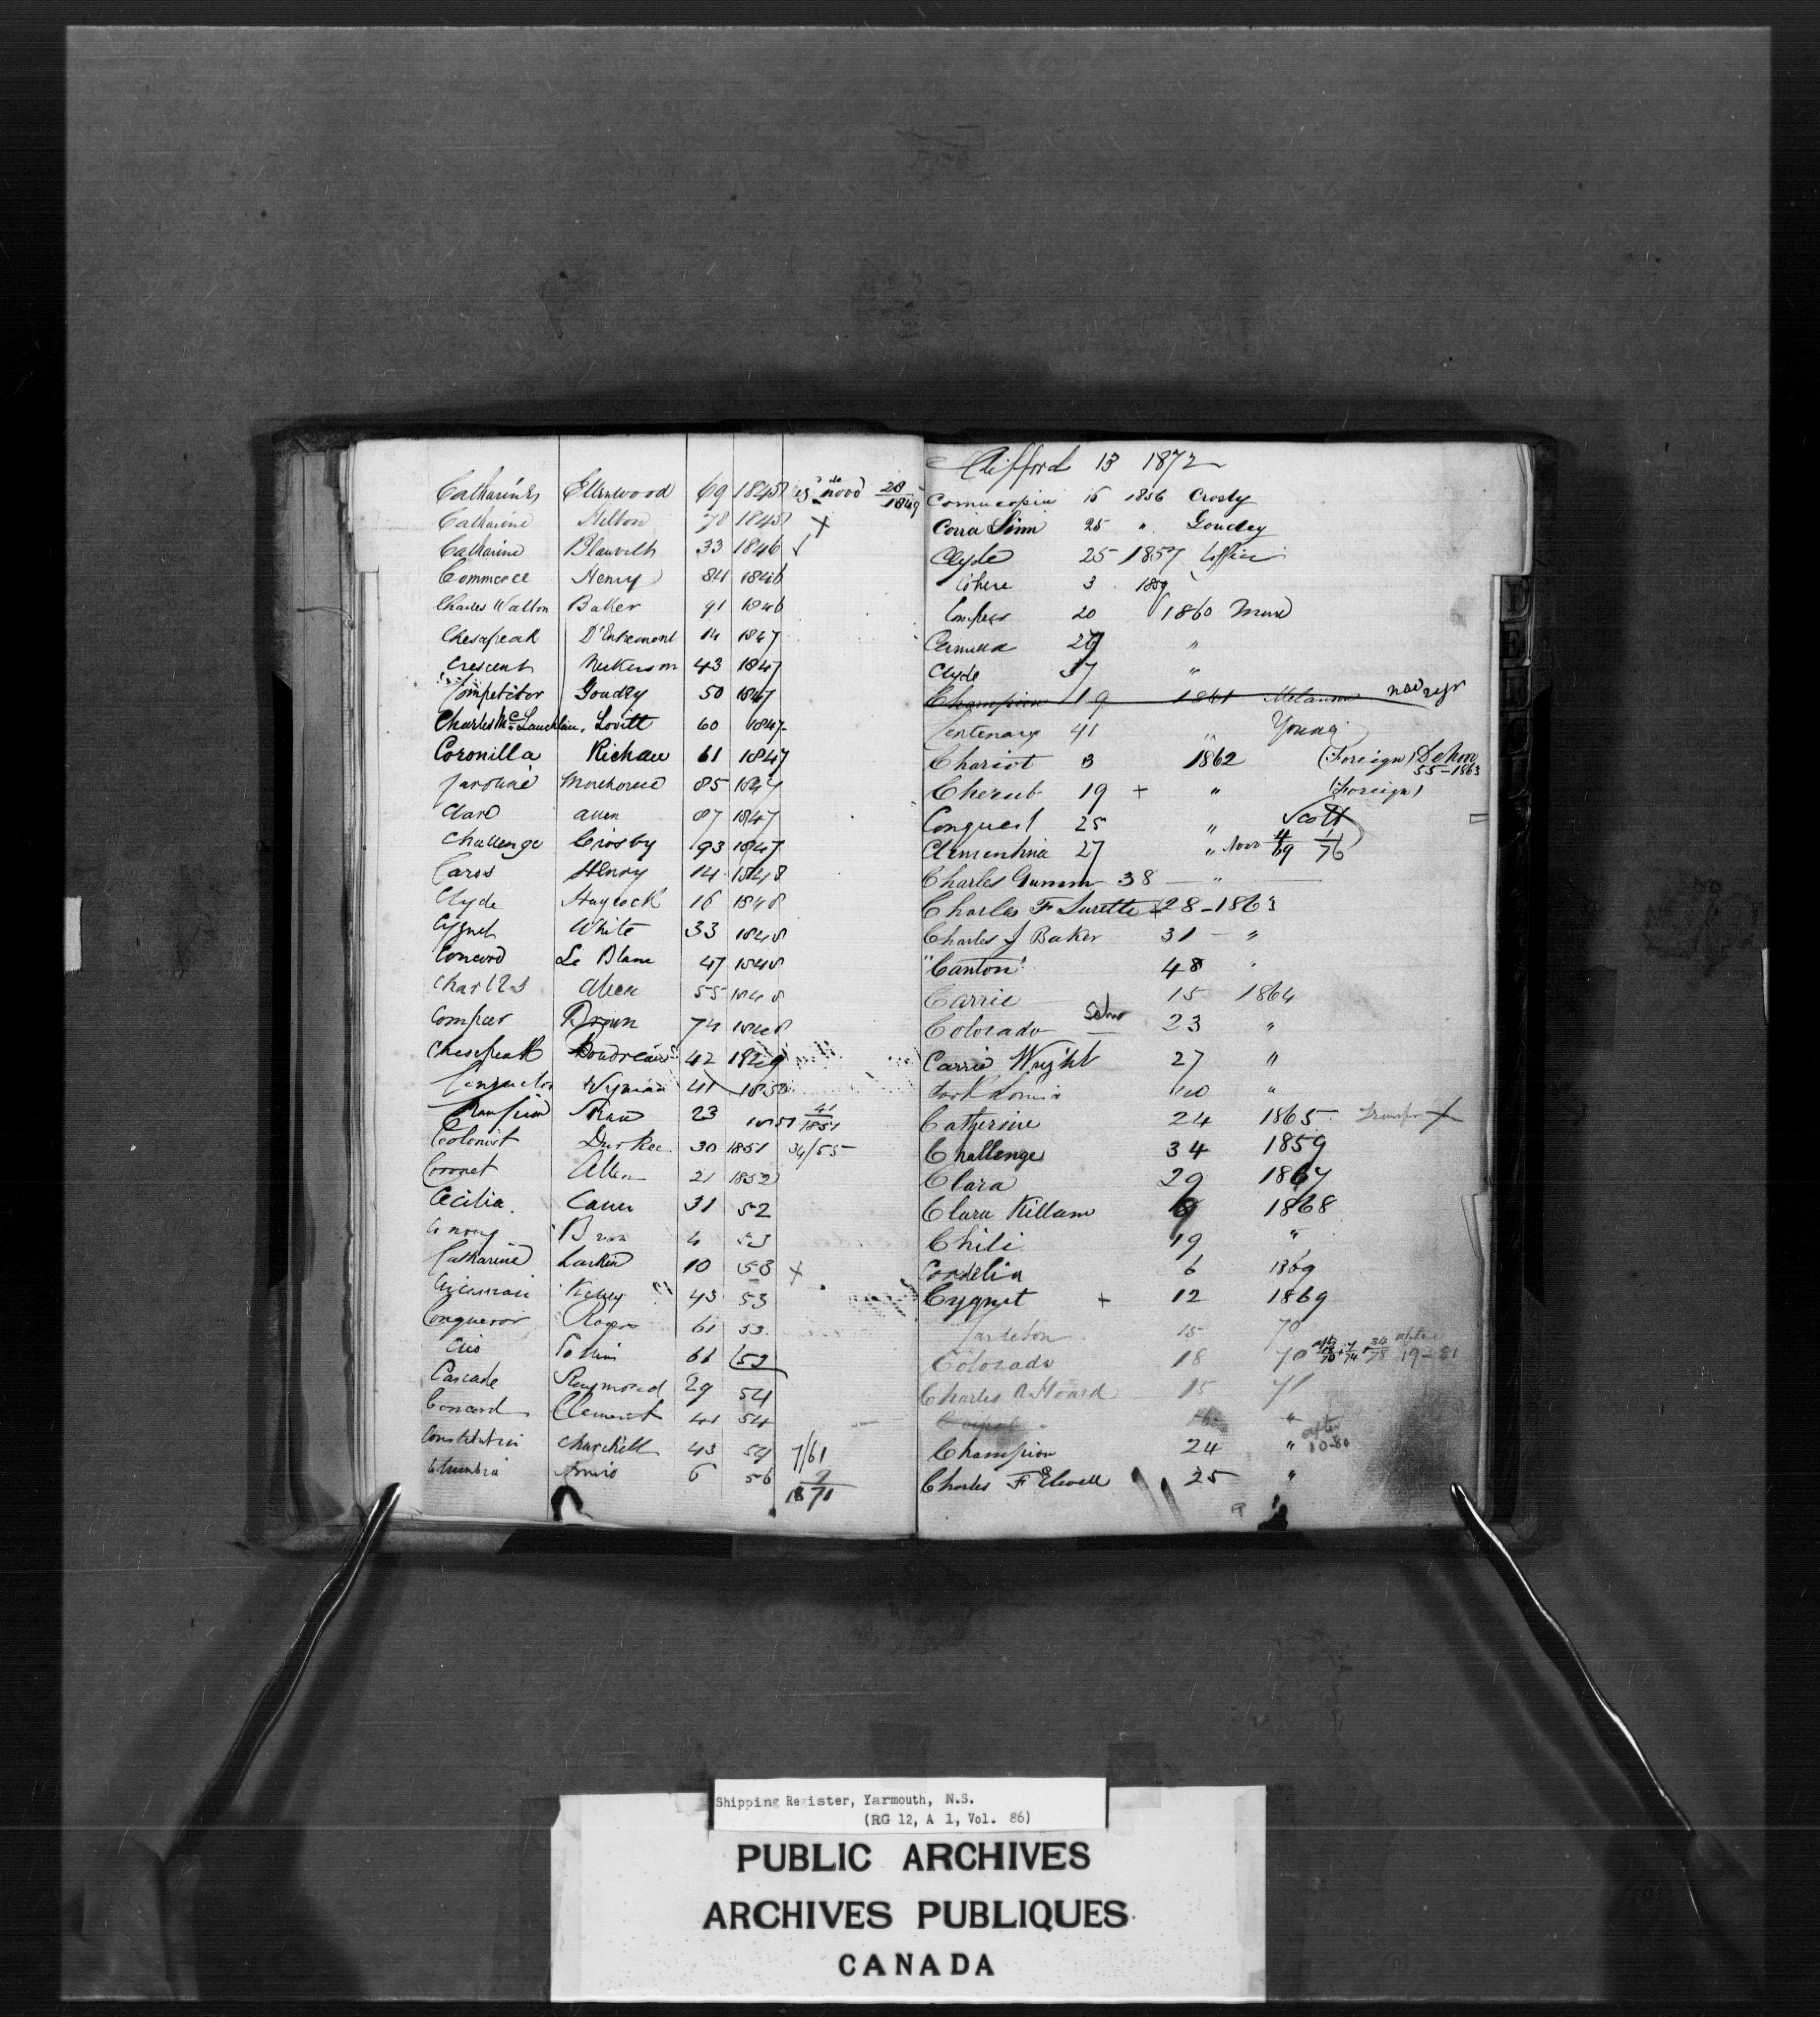 Catharine Ellenwood 69 1845 de novo 28/1849
Catharine Hilton 78 1845 x
Catharine Blauvelt 33 1846 ✓
Commerce Henry 84 1846
Charles Walton Baker 91 1846
Chesapeak D'Entremont 14 1847
Crescent Nickerson 43 1847
Competitor Goudey 50 1847
Charles Mc Lauchlan, Lovitt 60 1847
Coronilla Richan 61 1847
Caroline Morehouse 85 1847
Clara Allen 87 1847
Challenge Crosby 93 1847
Caros Henry 14 1848
Clyde Haycock 16 1848
Cygnet White 33 1848
Concord Le Blanc 47 1848
Charles Allen 55 1848
Compeer Brown 74 1848
Chesepeak Boudreau 42 1849
Wyman 41 1850
23 1851 41/1851
Colonist Durkee 30 1851 34/55
Coronet Allen 21 1852
Cecilia 31 52
4 53
Catharine Larkin 10 53 x
Kelley 43 53
Conqueror Rogers 61 53
Clio 66 53
Cascade Raymond 29 54
Concord Clements 41 54
Constitution Churchill 43 54 7/61
Columbia 6 56 9/1871
Clifford 13 1872
Cornucopia 16 1856 Crosby
25 " Goudey
Clyde 25 1857
3 1859
Compeer 20 1860
"
Clyde 37 "
Champion 19 1861 Melanson
Centenary 41 " Young
Chariot 3 1862 (Foreign)
55-1863
Cherub 19 + " (Foreign)
Conquest 25 " Scott
Clementina 27 " 4/69 1/76
Charles Gumm 38 "
Charles F Surette 28-1863
Charles J Baker 31 - "
"Canton" 48 "
Carrie 15 1864
Colorado Schr 23 "
Carrie Wright 27 "
40 "
Catherine 24 1865 Transfer x
Challenge 34 1859
Clara 29 1867
Clara Killam 1868
Chili 19 "
Cordelia 6 1869
Cygnet + 12 1869
Carleton 15 70
Colorado 18 70 7/74 34/78 after 19-81
Charles A Hoard 15 71
"
Champion 24 " after 10-80
Charles F Elwell 25 "
Shipping Register, Yarmouth, N.S.
(RG 12, A 1, Vol. 86)
PUBLIC ARCHIVES
ARCHIVES PUBLIQUES
CANADA